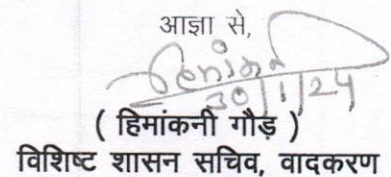 आज्ञा से,
30/1/24
( हिमांकनी गौड़ )
विशिष्ट शासन सचिव, वादकरण